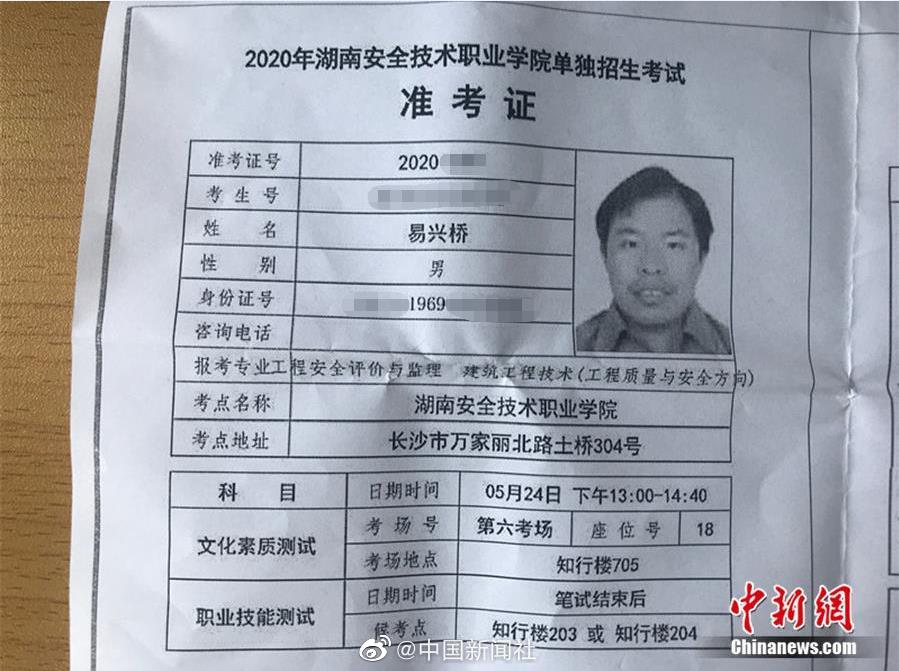 2020年湖南安全技术职业学院单独招生考试
准考证
准考证号 2020
考生号
姓名 易兴桥
性别 男
身份证号 1969
咨询电话
报考专业 工程安全评价与监理 建筑工程技术(工程质量与安全方向)
考点名称 湖南安全技术职业学院
考点地址 长沙市万家丽北路土桥304号
科目 日期时间 05月24日 下午13:00-14:40
文化素质测试 考场号 第六考场 座位号 18
考场地点 知行楼705
职业技能测试 日期时间 笔试结束后
候考点 知行楼203 或 知行楼204
中新網
Chinanews.com
@中国新闻社